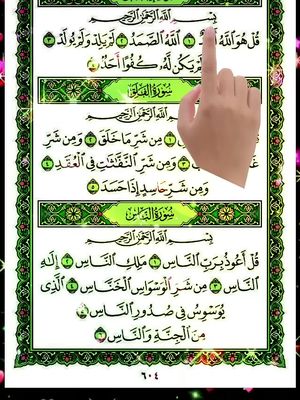 بِسْمِ ٱللَّهِ ٱلرَّحْمَٰنِ ٱلرَّحِيمِ
قُلْ هُوَ ٱللَّهُ ١ ٱللَّهُ ٱلصَّمَدُ ٢ لَمْ يَلِدْ وَلَمْ يُولَدْ ٣
يَكُن لَّهُۥ كُفُوًا أَحَدٌۢ
سُورَةُ الفَلَقِ
بِسْمِ ٱللَّهِ ٱلرَّحْمَٰنِ ٱلرَّحِيمِ
١ مِن شَرِّ مَا خَلَقَ ٢ وَمِن شَرِّ
٣ وَمِن شَرِّ ٱلنَّفَّٰثَٰتِ فِى ٱلْعُقَدِ ٤
وَمِن شَرِّ حَاسِدٍ إِذَا حَسَدَ ٥
سُورَةُ النَّاسِ
بِسْمِ ٱللَّهِ ٱلرَّحْمَٰنِ ٱلرَّحِيمِ
قُلْ أَعُوذُ بِرَبِّ ٱلنَّاسِ ١ مَلِكِ ٱلنَّاسِ ٢ إِلَٰهِ
ٱلنَّاسِ ٣ مِن شَرِّ ٱلْوَسْوَاسِ ٱلْخَنَّاسِ ٤ ٱلَّذِى
يُوَسْوِسُ فِى صُدُورِ ٱلنَّاسِ ٥
مِنَ ٱلْجِنَّةِ وَٱلنَّاسِ ٦
٦٠٤